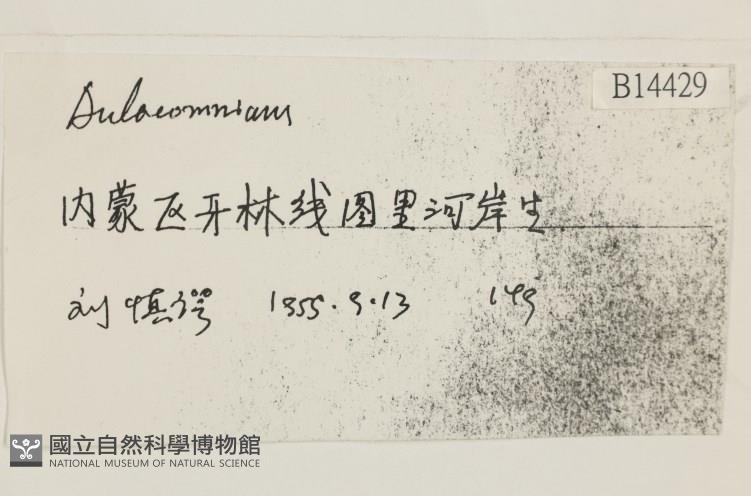 B14429
Aulacomnium
内蒙区牙林线图里河岸生
刘慎谔 1955.9.13 149
國立自然科學博物館
NATIONAL MUSEUM OF NATURAL SCIENCE